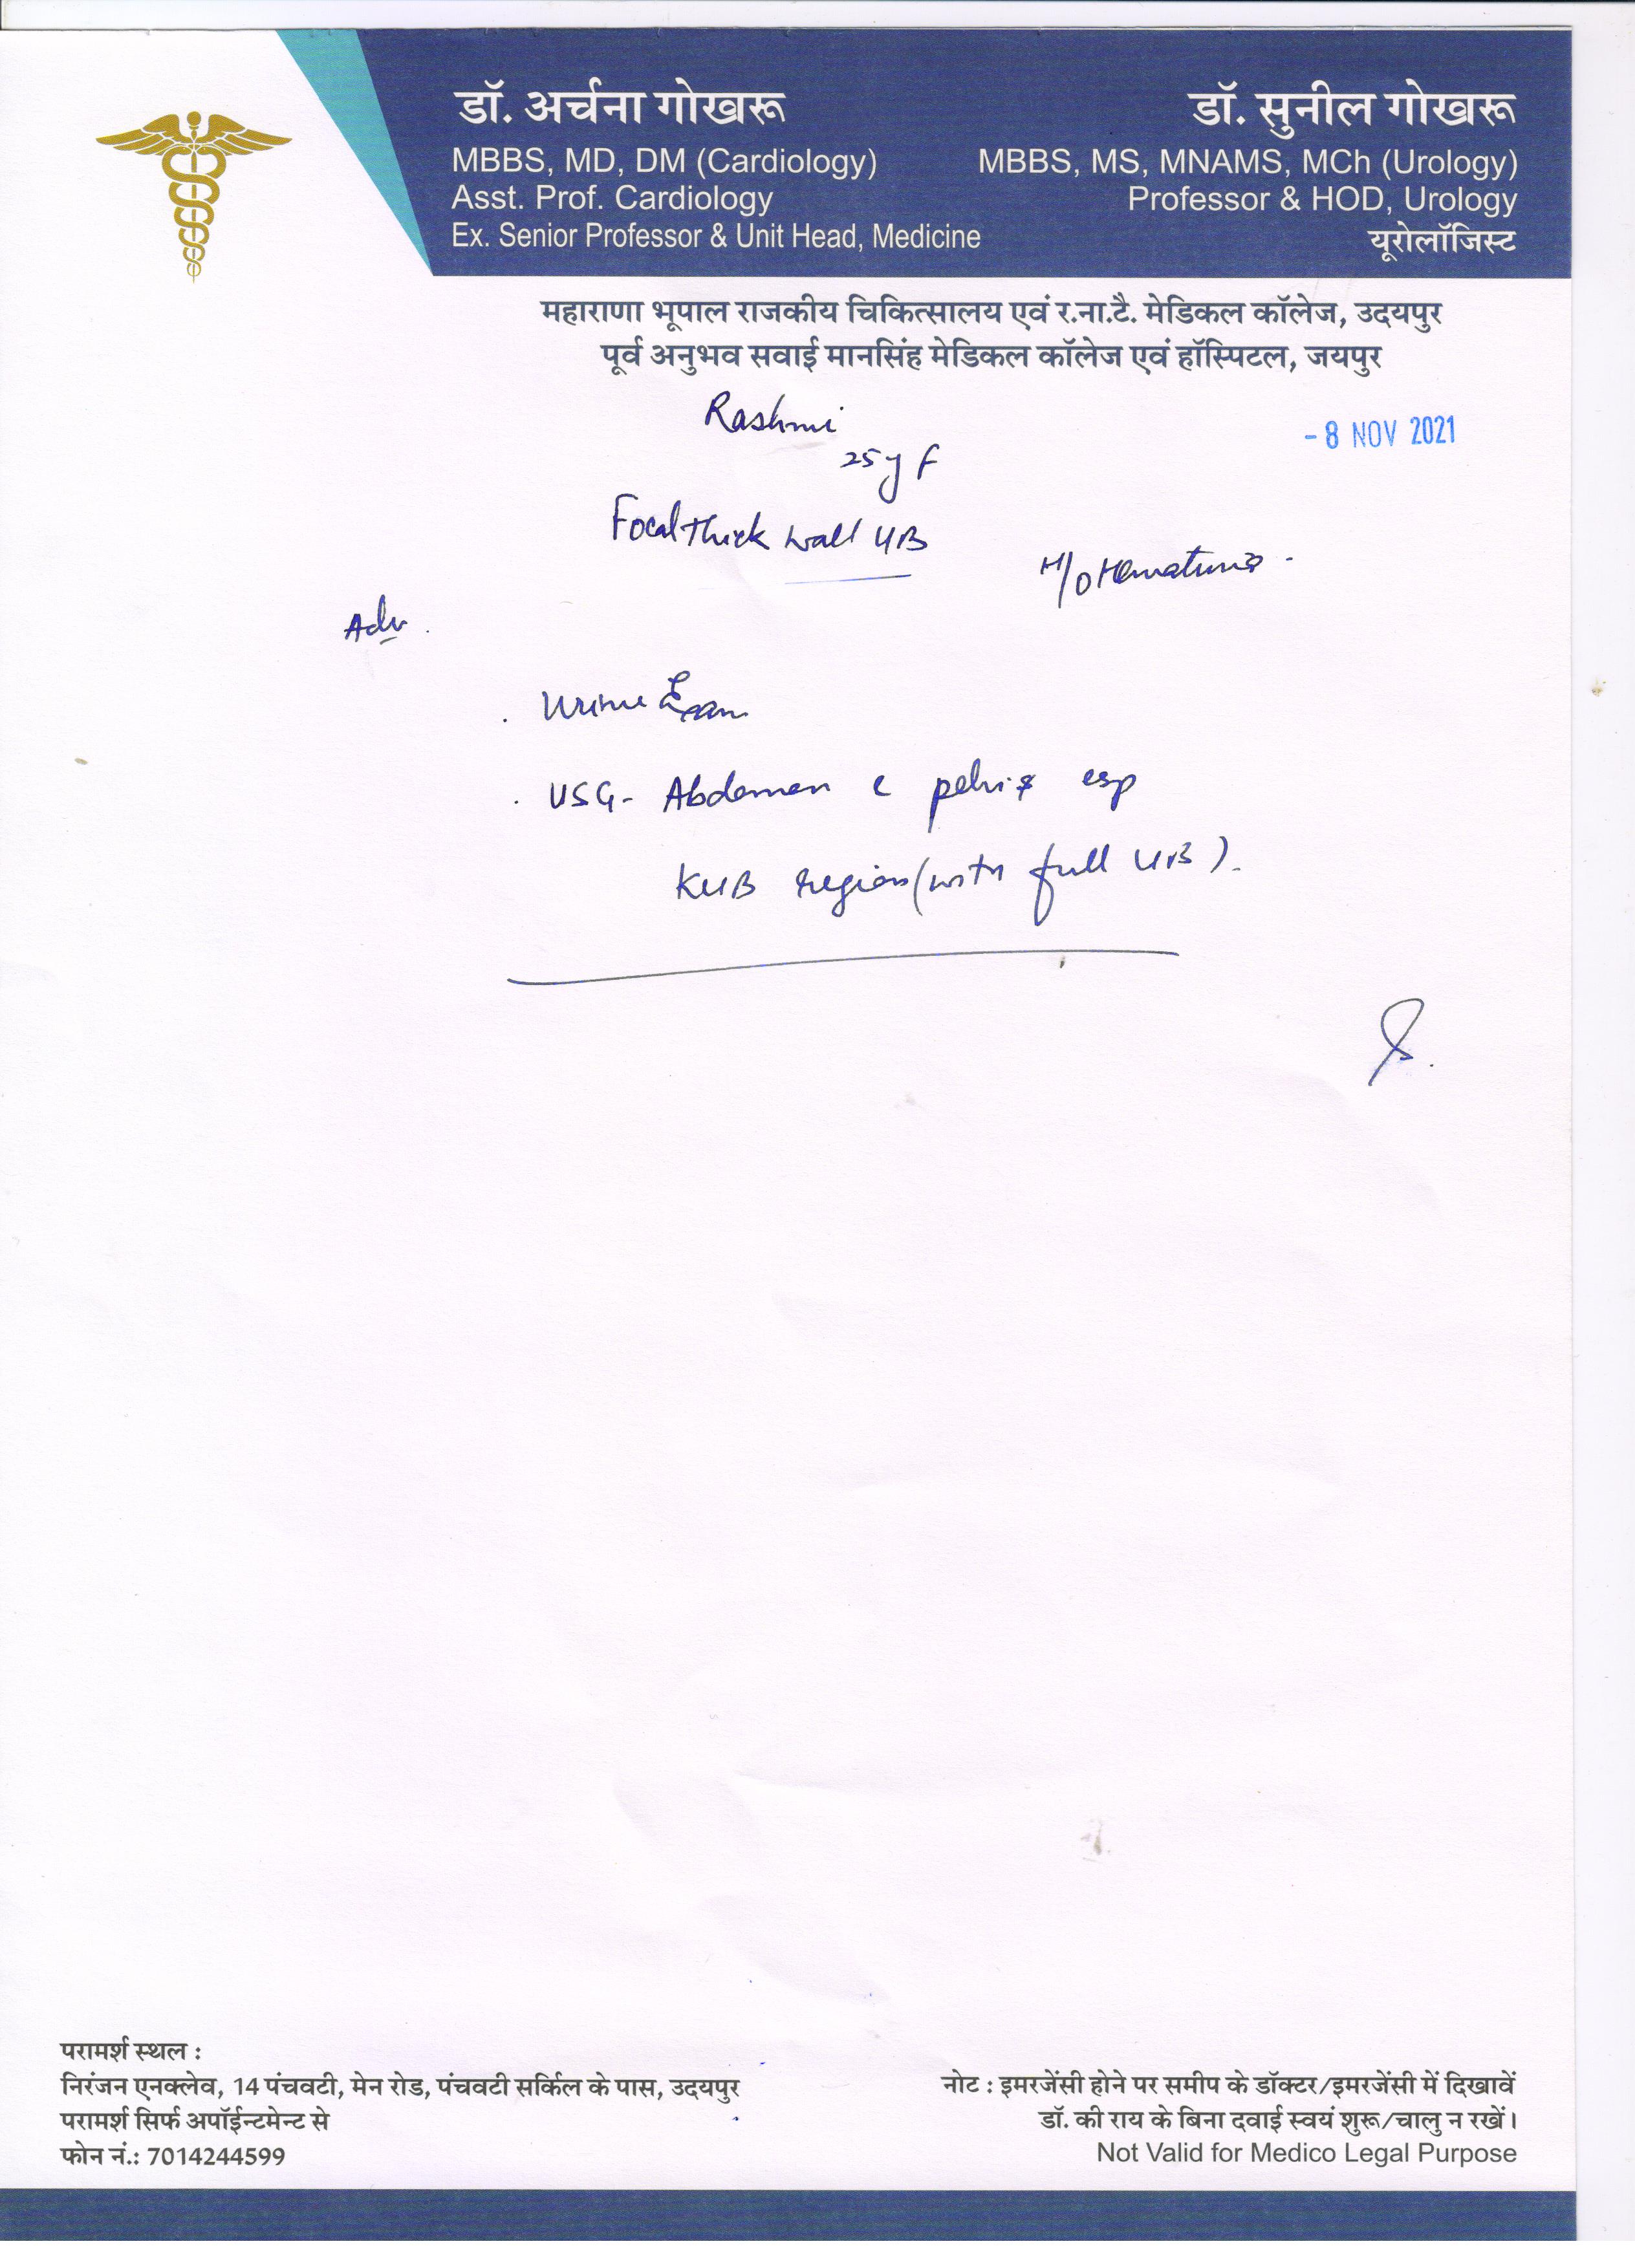 डॉ. अर्चना गोखरू
MBBS, MD, DM (Cardiology)
Asst. Prof. Cardiology
Ex. Senior Professor & Unit Head, Medicine
डॉ. सुनील गोखरू
MBBS, MS, MNAMS, MCh (Urology)
Professor & HOD, Urology
यूरोलॉजिस्ट
महाराणा भूपाल राजकीय चिकित्सालय एवं र.ना.टै. मेडिकल कॉलेज, उदयपुर
पूर्व अनुभव सवाई मानसिंह मेडिकल कॉलेज एवं हॉस्पिटल, जयपुर
Rashmi
- 8 NOV 2021
25 y F
Focal thick wall UB
H/O Hematuria -
Adv.
. Urine Exam
. USG - Abdomen c pelvis esp
KUB region (with full UB).
परामर्श स्थल :
निरंजन एनक्लेव, 14 पंचवटी, मेन रोड, पंचवटी सर्किल के पास, उदयपुर
परामर्श सिर्फ अपॉईन्टमेन्ट से
फोन नं.: 7014244599
नोट : इमरजेंसी होने पर समीप के डॉक्टर/इमरजेंसी में दिखावें
डॉ. की राय के बिना दवाई स्वयं शुरू/चालु न रखें।
Not Valid for Medico Legal Purpose